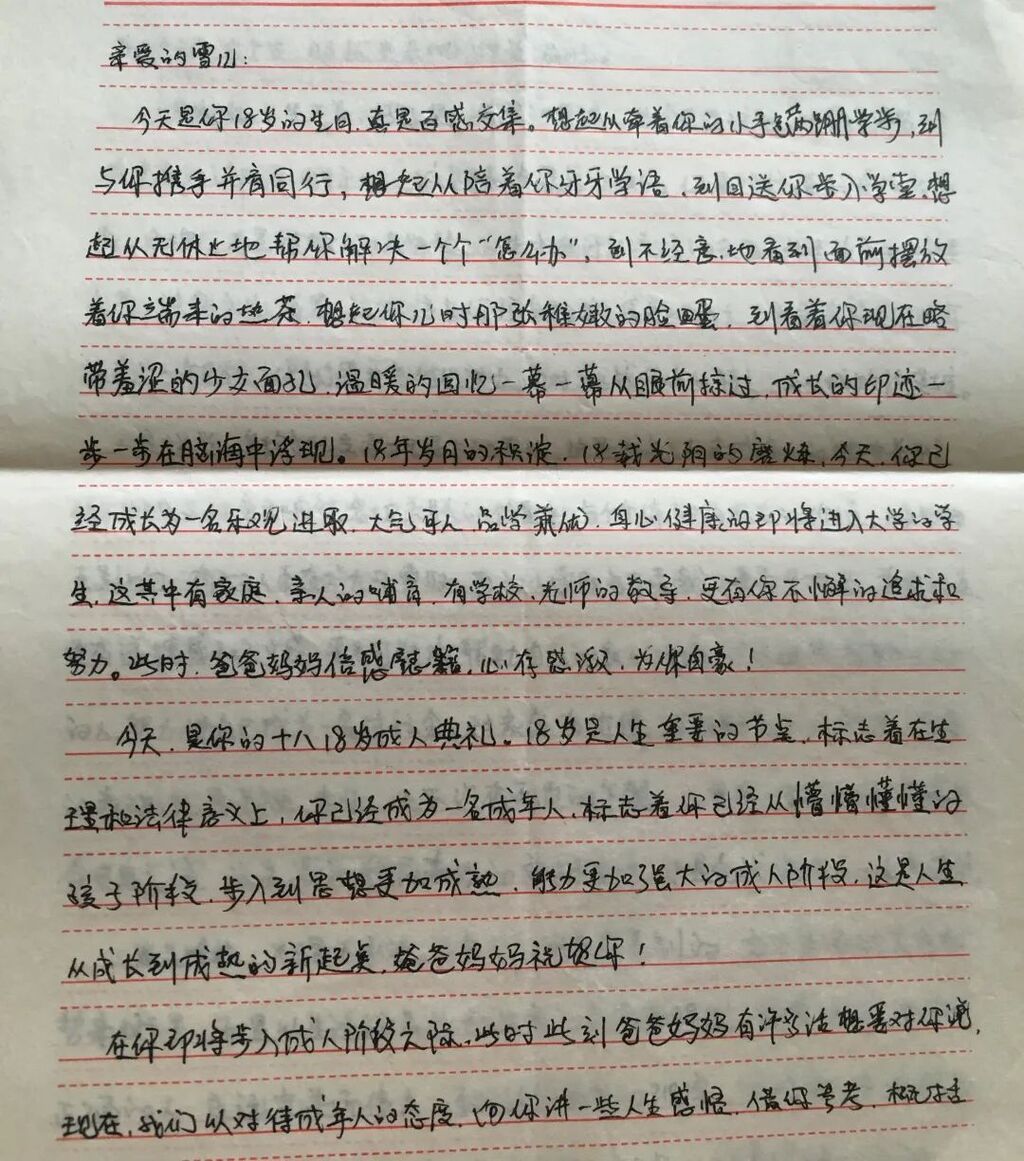 亲爱的雪儿：
今天是你18岁的生日，真是百感交集。想起从牵着你的小手蹒跚学步，到
与你携手并肩同行，想起从陪着你牙牙学语，到目送你步入学堂，想
起从无休止地帮你解决一个个“怎么办”，到不经意地看到面前摆放
着你端来的热茶，想起你儿时那张稚嫩的脸蛋，到看着你现在略
带羞涩的少女面孔，温暖的回忆一幕一幕从眼前掠过，成长的印迹一
步一步在脑海中浮现。18年岁月的积淀，18载光阴的磨炼，今天，你已
经成长为一名乐观进取、大气可人、品学兼优、身心健康的即将进入大学的学
生，这其中有家庭、亲人的哺育，有学校、老师的教导，更有你不懈的追求和
努力。此时，爸爸妈妈倍感慰籍，心存感激，为你自豪！
今天，是你的十八18岁成人典礼。18岁是人生重要的节点，标志着在生
理和法律意义上，你已经成为一名成年人，标志着你已经从懵懵懂懂的
孩子阶段，步入到思想更加成熟，能力更加强大的成人阶段，这是人生
从成长到成熟的新起点，爸爸妈妈祝贺你！
在你即将步入成人阶段之际，此时此刻爸爸妈妈有许多话想要对你说，
现在，我们以对待成年人的态度，向你讲一些人生感悟，借你参考，概括